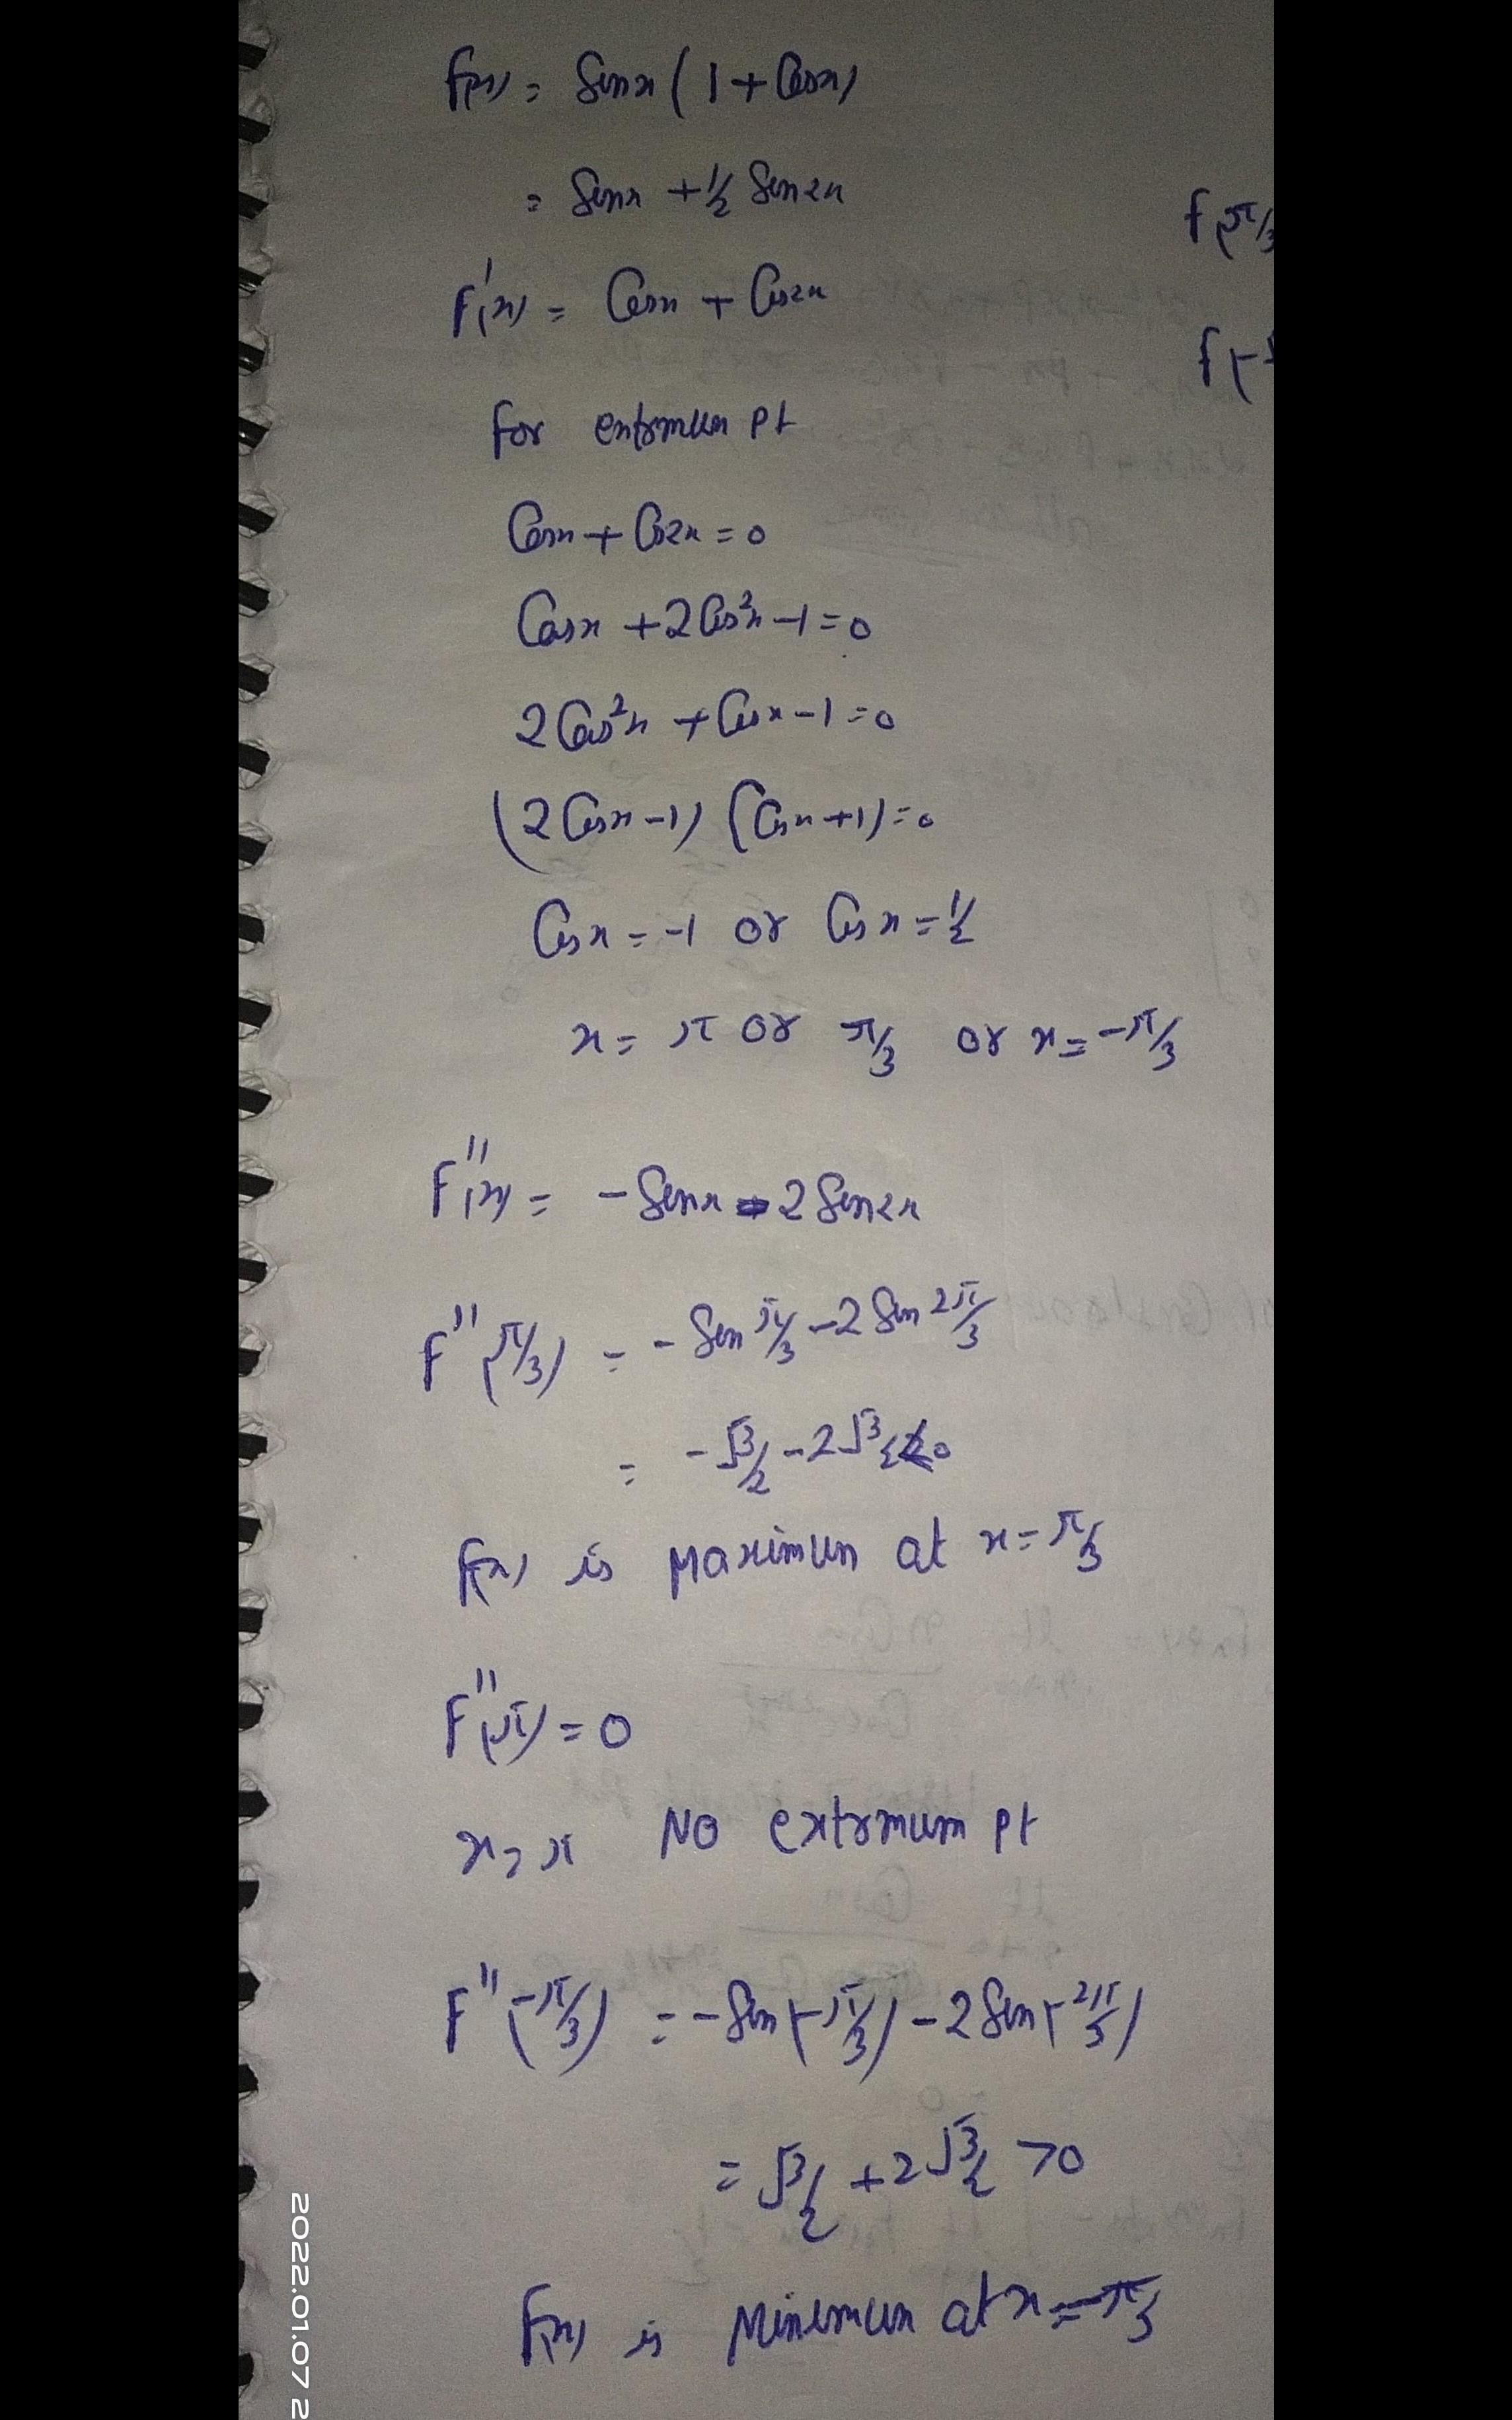 f(x) = Sinx (1 + Cosx)
= Sinx + 1/2 Sin2x
f(π/3
F'(x) = Cosx + Cos2x
f(-π
for extrmum pt
Cosx + Cos2x = 0
Cosx + 2Cos²x - 1 = 0
2Cos²x + Cosx - 1 = 0
(2Cosx - 1) (Cosx + 1) = 0
Cosx = -1 or Cosx = 1/2
x = π or π/3 or x = -π/3
F''(x) = - Sinx - 2 Sin2x
F''(π/3) = - Sin π/3 - 2 Sin 2π/3
= - √3/2 - 2√3/2 < 0
f(x) is Maximum at x = π/3
F''(π) = 0
x = π No extrmum pt
F''(-π/3) = - Sin(-π/3) - 2 Sin(-2π/3)
= √3/2 + 2√3/2 > 0
F(x) is Minimum at x = -π/3
2022.01.07 2